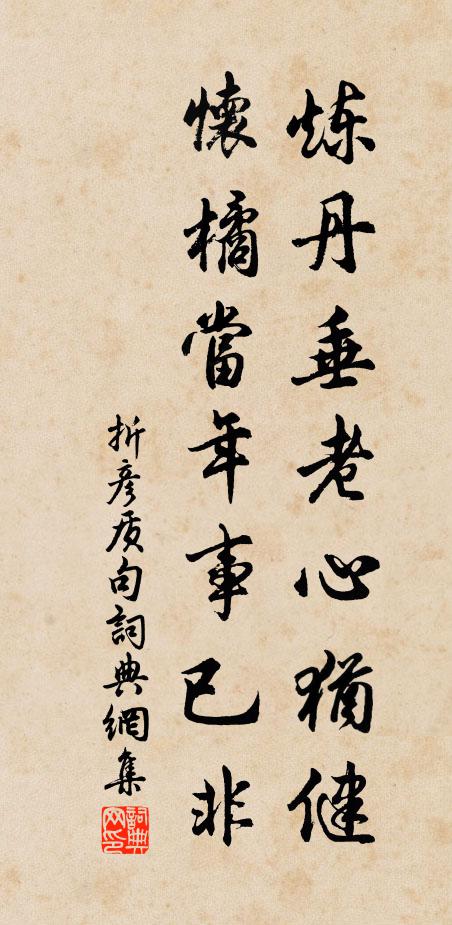 炼丹垂老心猶健
懷橘當年事已非
折彦质句詞典網集
詞典网印